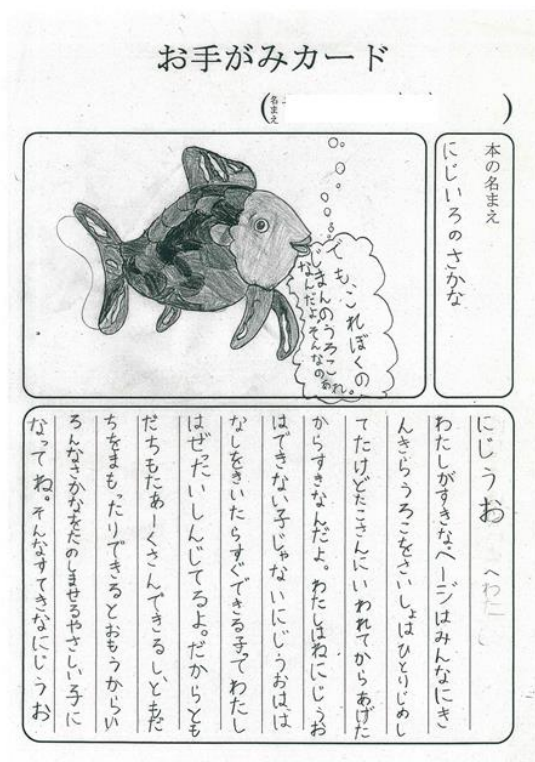 お手がみカード
(名まえ )
本の名まえ
にじいろのさかな
でも、これぼくの
じまんのうろこ
なんだよ。そんなの
あれ。
にじうお へわた
わたしがすきな。ページはみんなにき
んきらうろこをさいしょはひとりじめし
てたけどたこさんにいわれてからあげた
からすきなんだよ。わたしはねにじうお
はできない子じゃないにじうおはは
なしをきいたらすぐできる子ってわたし
はぜったいしんじてるよ。だからとも
だちもたあーくさんできるし、ともだ
ちをまもったりできるとおもうからい
ろんなさかなをたのしませるやさしい子に
なってね。そんなすてきなにじうお